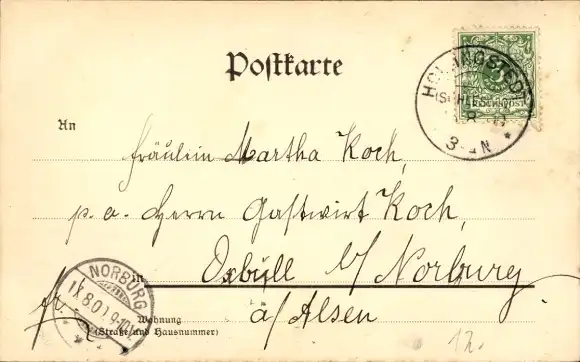 Postkarte
HOLLINGSTEDT
(SCHLESW.)
REICHSPOST
3-4 N
An
Fräulein Martha Koch,
p. a. Herrn Gastwirt Koch,
in Oxbüll b/ Norburg
a/ Alsen
NORBURG
fr.
Wohnung
(Straße und Hausnummer)
12.